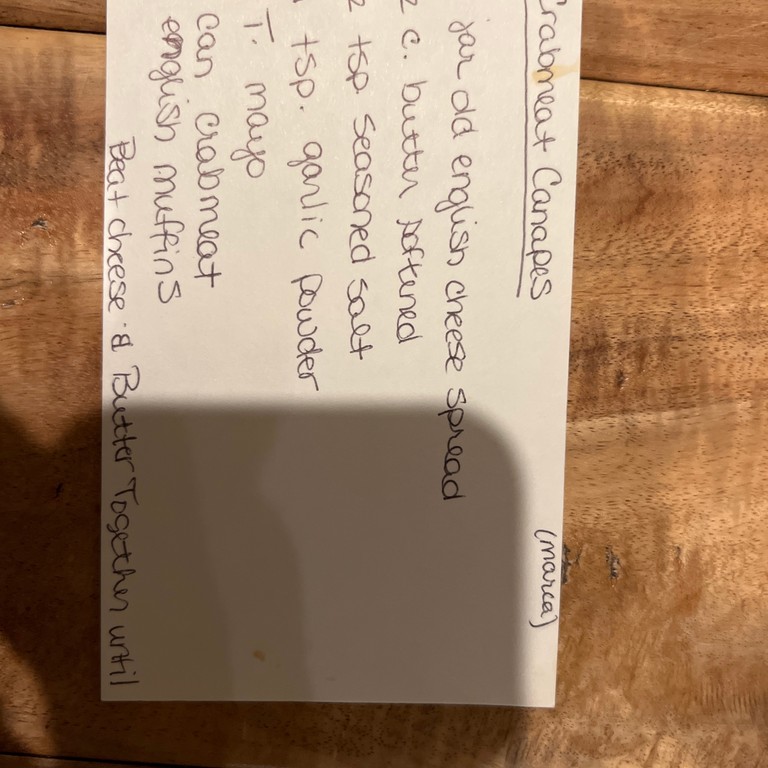 Crabmeat Canapes (marca)
jar old english cheese spread
2 c. butter softened
2 tsp seasoned salt
tsp. garlic powder
T. mayo
can crabmeat
english muffins
Beat cheese & Butter Together until